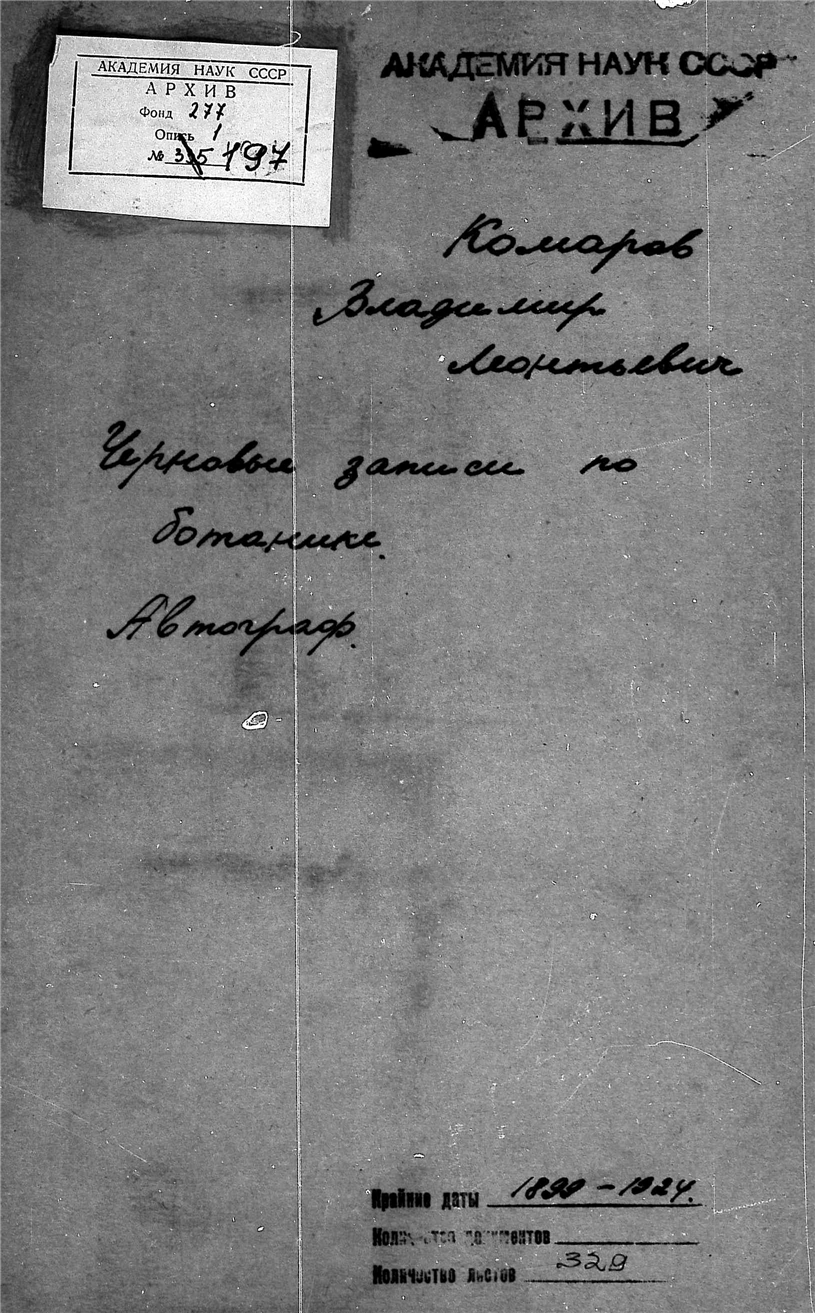 АКАДЕМИЯ НАУК СССР
АРХИВ
Фонд 277
Опись 1
№ 197
АКАДЕМИЯ НАУК СССР
АРХИВ
Комаров
Владимир
Леонтьевич
Черновые записи по
ботанике.
Автограф.
Крайние даты 1899-1924.
Количество документов
Количество листов 329